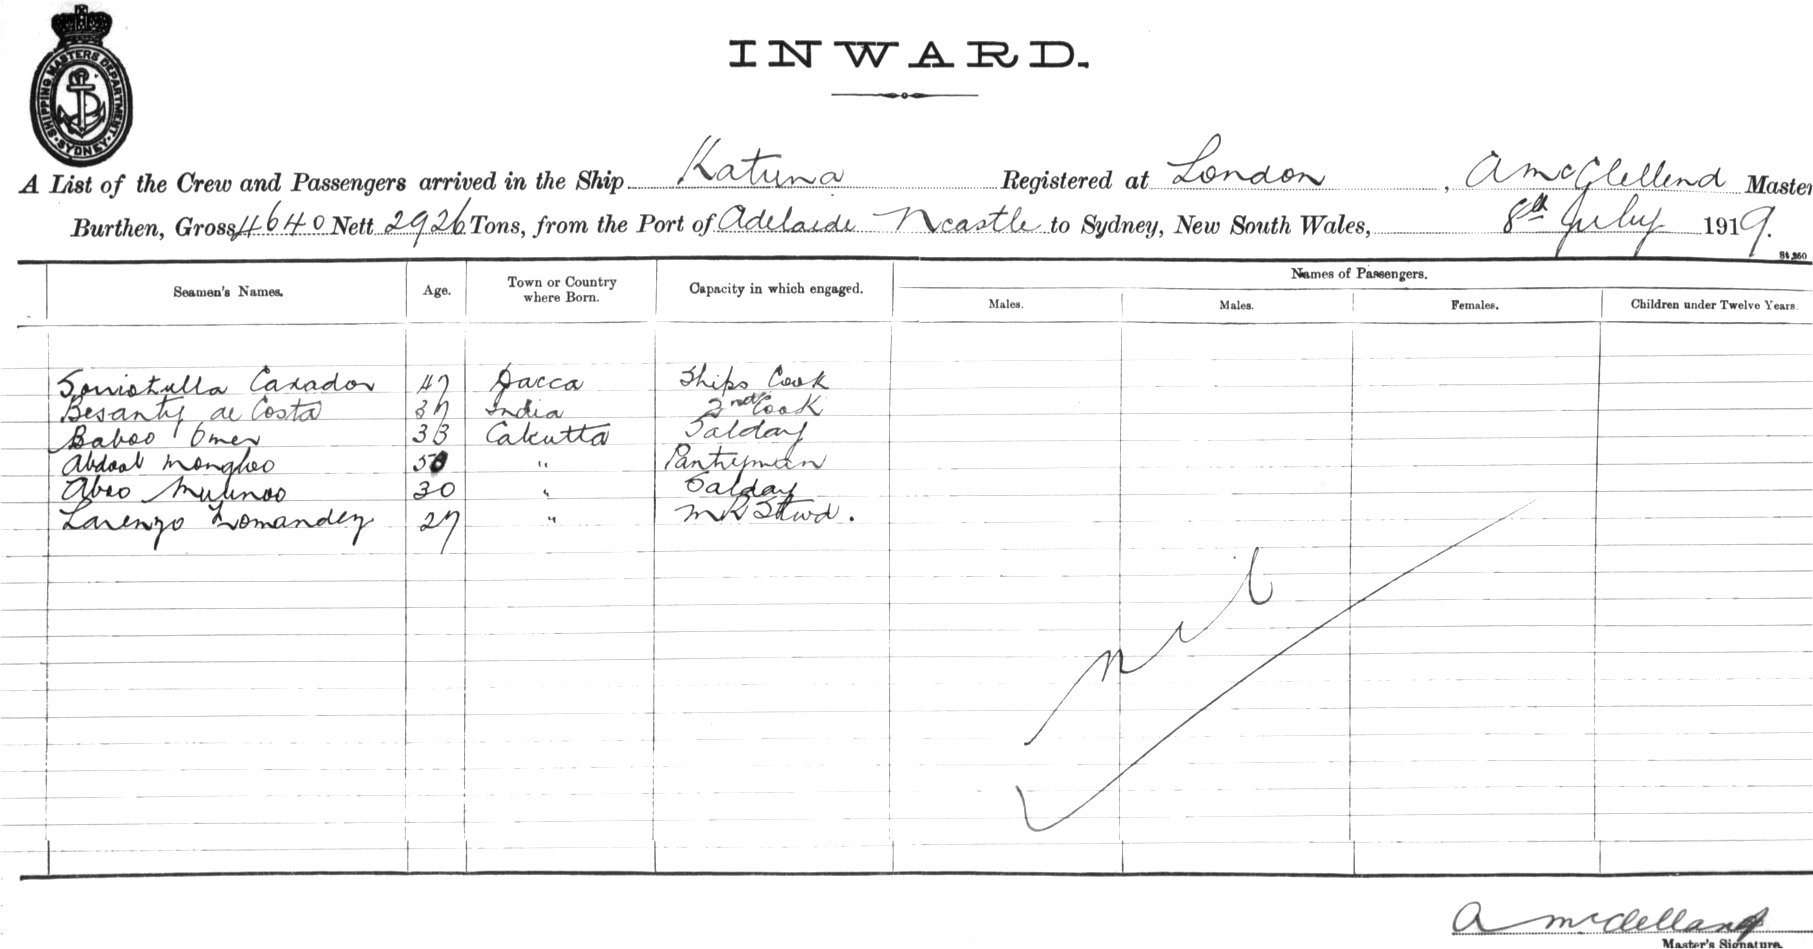 SHIPPING MASTERS DEPARTMENT SYDNEY
INWARD.
A List of the Crew and Passengers arrived in the Ship Katuna Registered at London, A McClellend Master
Burthen, Gross 4640 Nett 2926 Tons, from the Port of Adelaide Ncastle to Sydney, New South Wales, 8th July 1919.
St.260
Seamen's Names. Age. Town or Country where Born. Capacity in which engaged. Names of Passengers.
Males. Males. Females. Children under Twelve Years.
47 Dacca Ships Cook
Besanty de Costa 37 India 2nd Cook
Baboo Omer 33 Calcutta
50 " Pantryman
Aboo 30 "
Larenzo 27 " Stwd.
nil
A McClelland
Master's Signature.